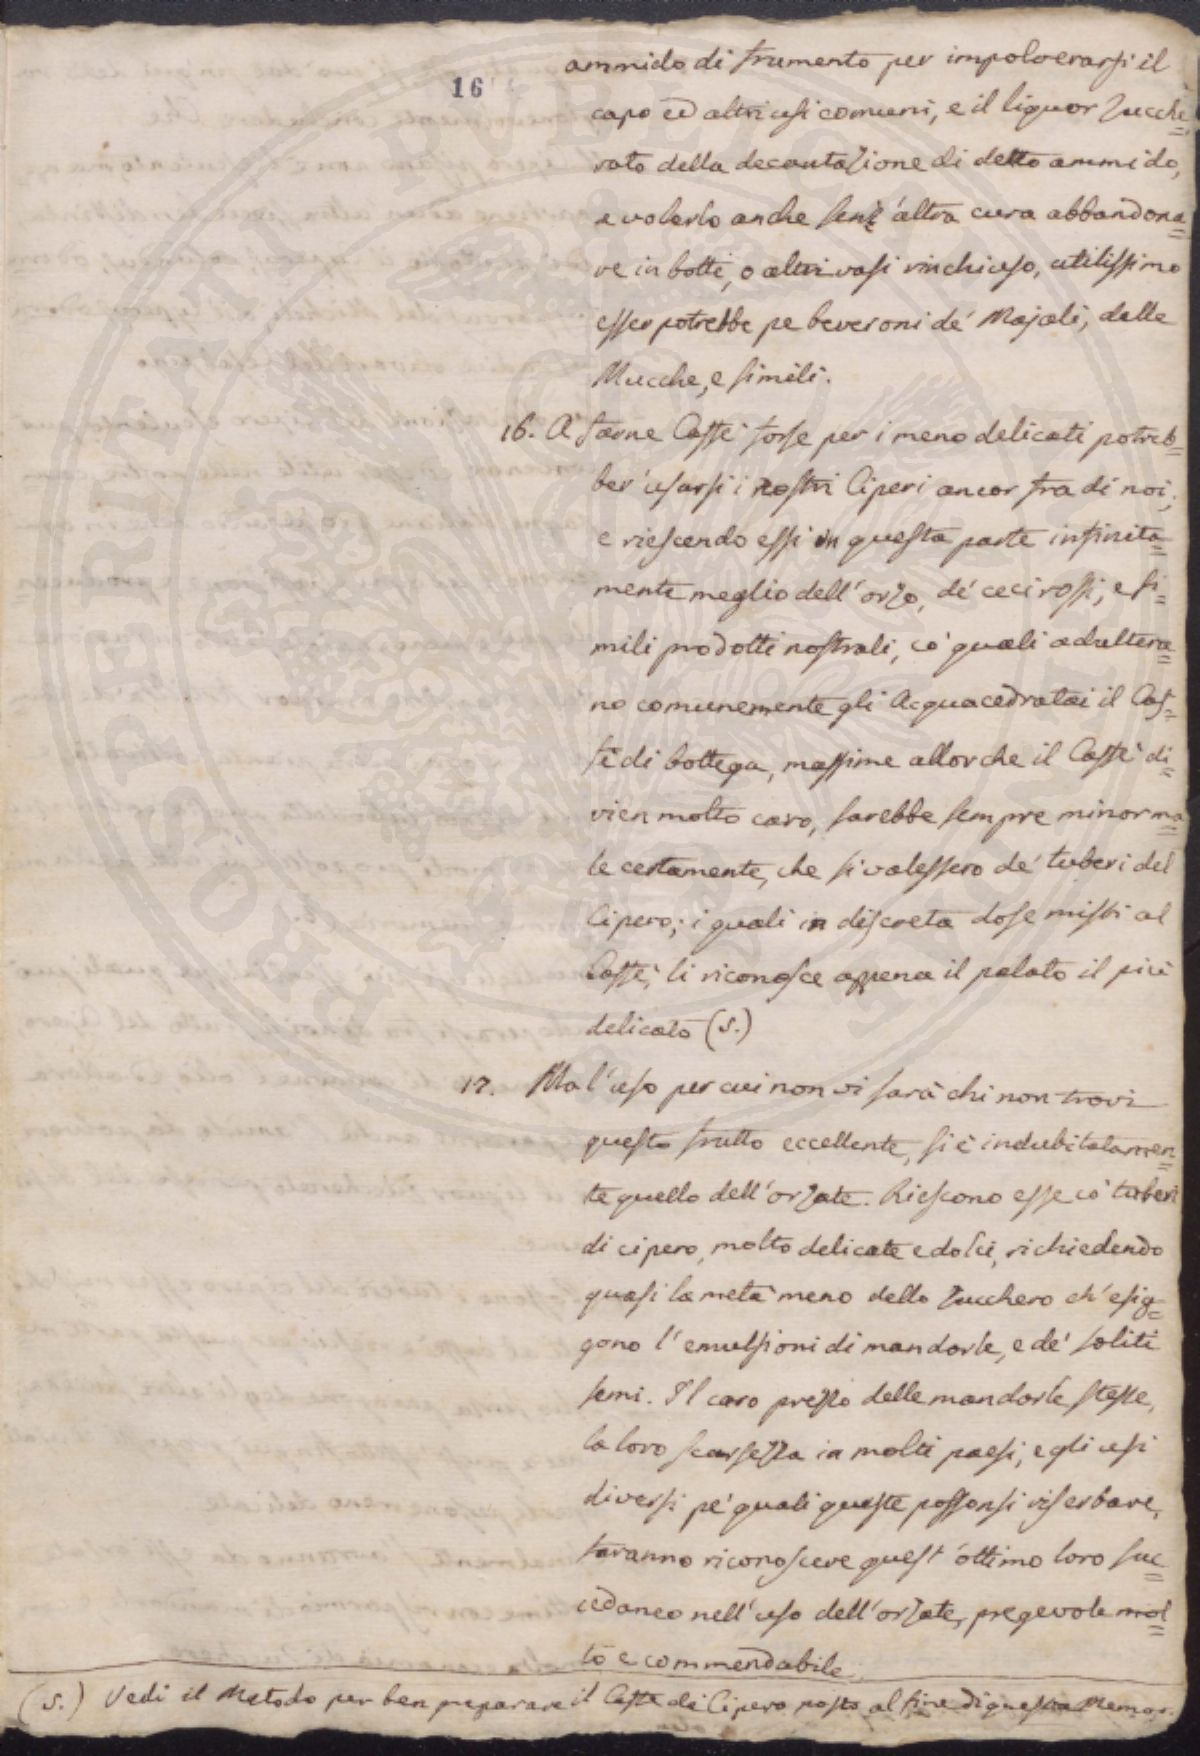 16
ammido di frumento per impolverarsi il
capo ed altri usi comuni, e il liquor zucche=
rato della decantazione di detto ammido,
a volerlo anche senz'altra cura abbandona=
re in botti, o altri vasi rinchiuso, utilissimo
esser potrebbe pe beveroni de' Majali, delle
Mucche, e simili.
16. A farne Caffè forse per i meno delicati potreb=
ber' usarsi i nostri Ciperi ancor fra di noi;
e riescendo essi in questa parte infinita=
mente meglio dell'orzo, de' ceci rossi, e si=
mili prodotti nostrali, co' quali adultera=
no comunemente gli Acquacedratai il Caf=
fè di bottega, massime allorche il Caffè di=
vien molto caro, sarebbe sempre minor ma=
le certamente, che si valessero de' tuberi del
Cipero; i quali in discreta dose misti al
Caffè, li riconosce appena il palato il più
delicato (s.)
17. Ma l'uso per cui non vi sarà chi non trovi
questo frutto eccellente, si è indubitatamen=
te quello dell'orzate. Riescono esse co' tuberi
di cipero, molto delicate e dolci, richiedendo
quasi la metà meno dello zucchero ch'esig=
gono l'emulsioni di mandorle, e de' soliti
semi. Il caro prezzo delle mandorle stesse,
la loro scarsezza in molti paesi, e gli usi
diversi pe' quali queste possonsi riserbare,
faranno riconoscere quest'ottimo loro suc=
cedaneo nell'uso dell'orzate, pregevole mol=
to e commendabile.
(s.) Vedi il Metodo per ben preparare il Caffe di Cipero posto al fine di questa Memor.